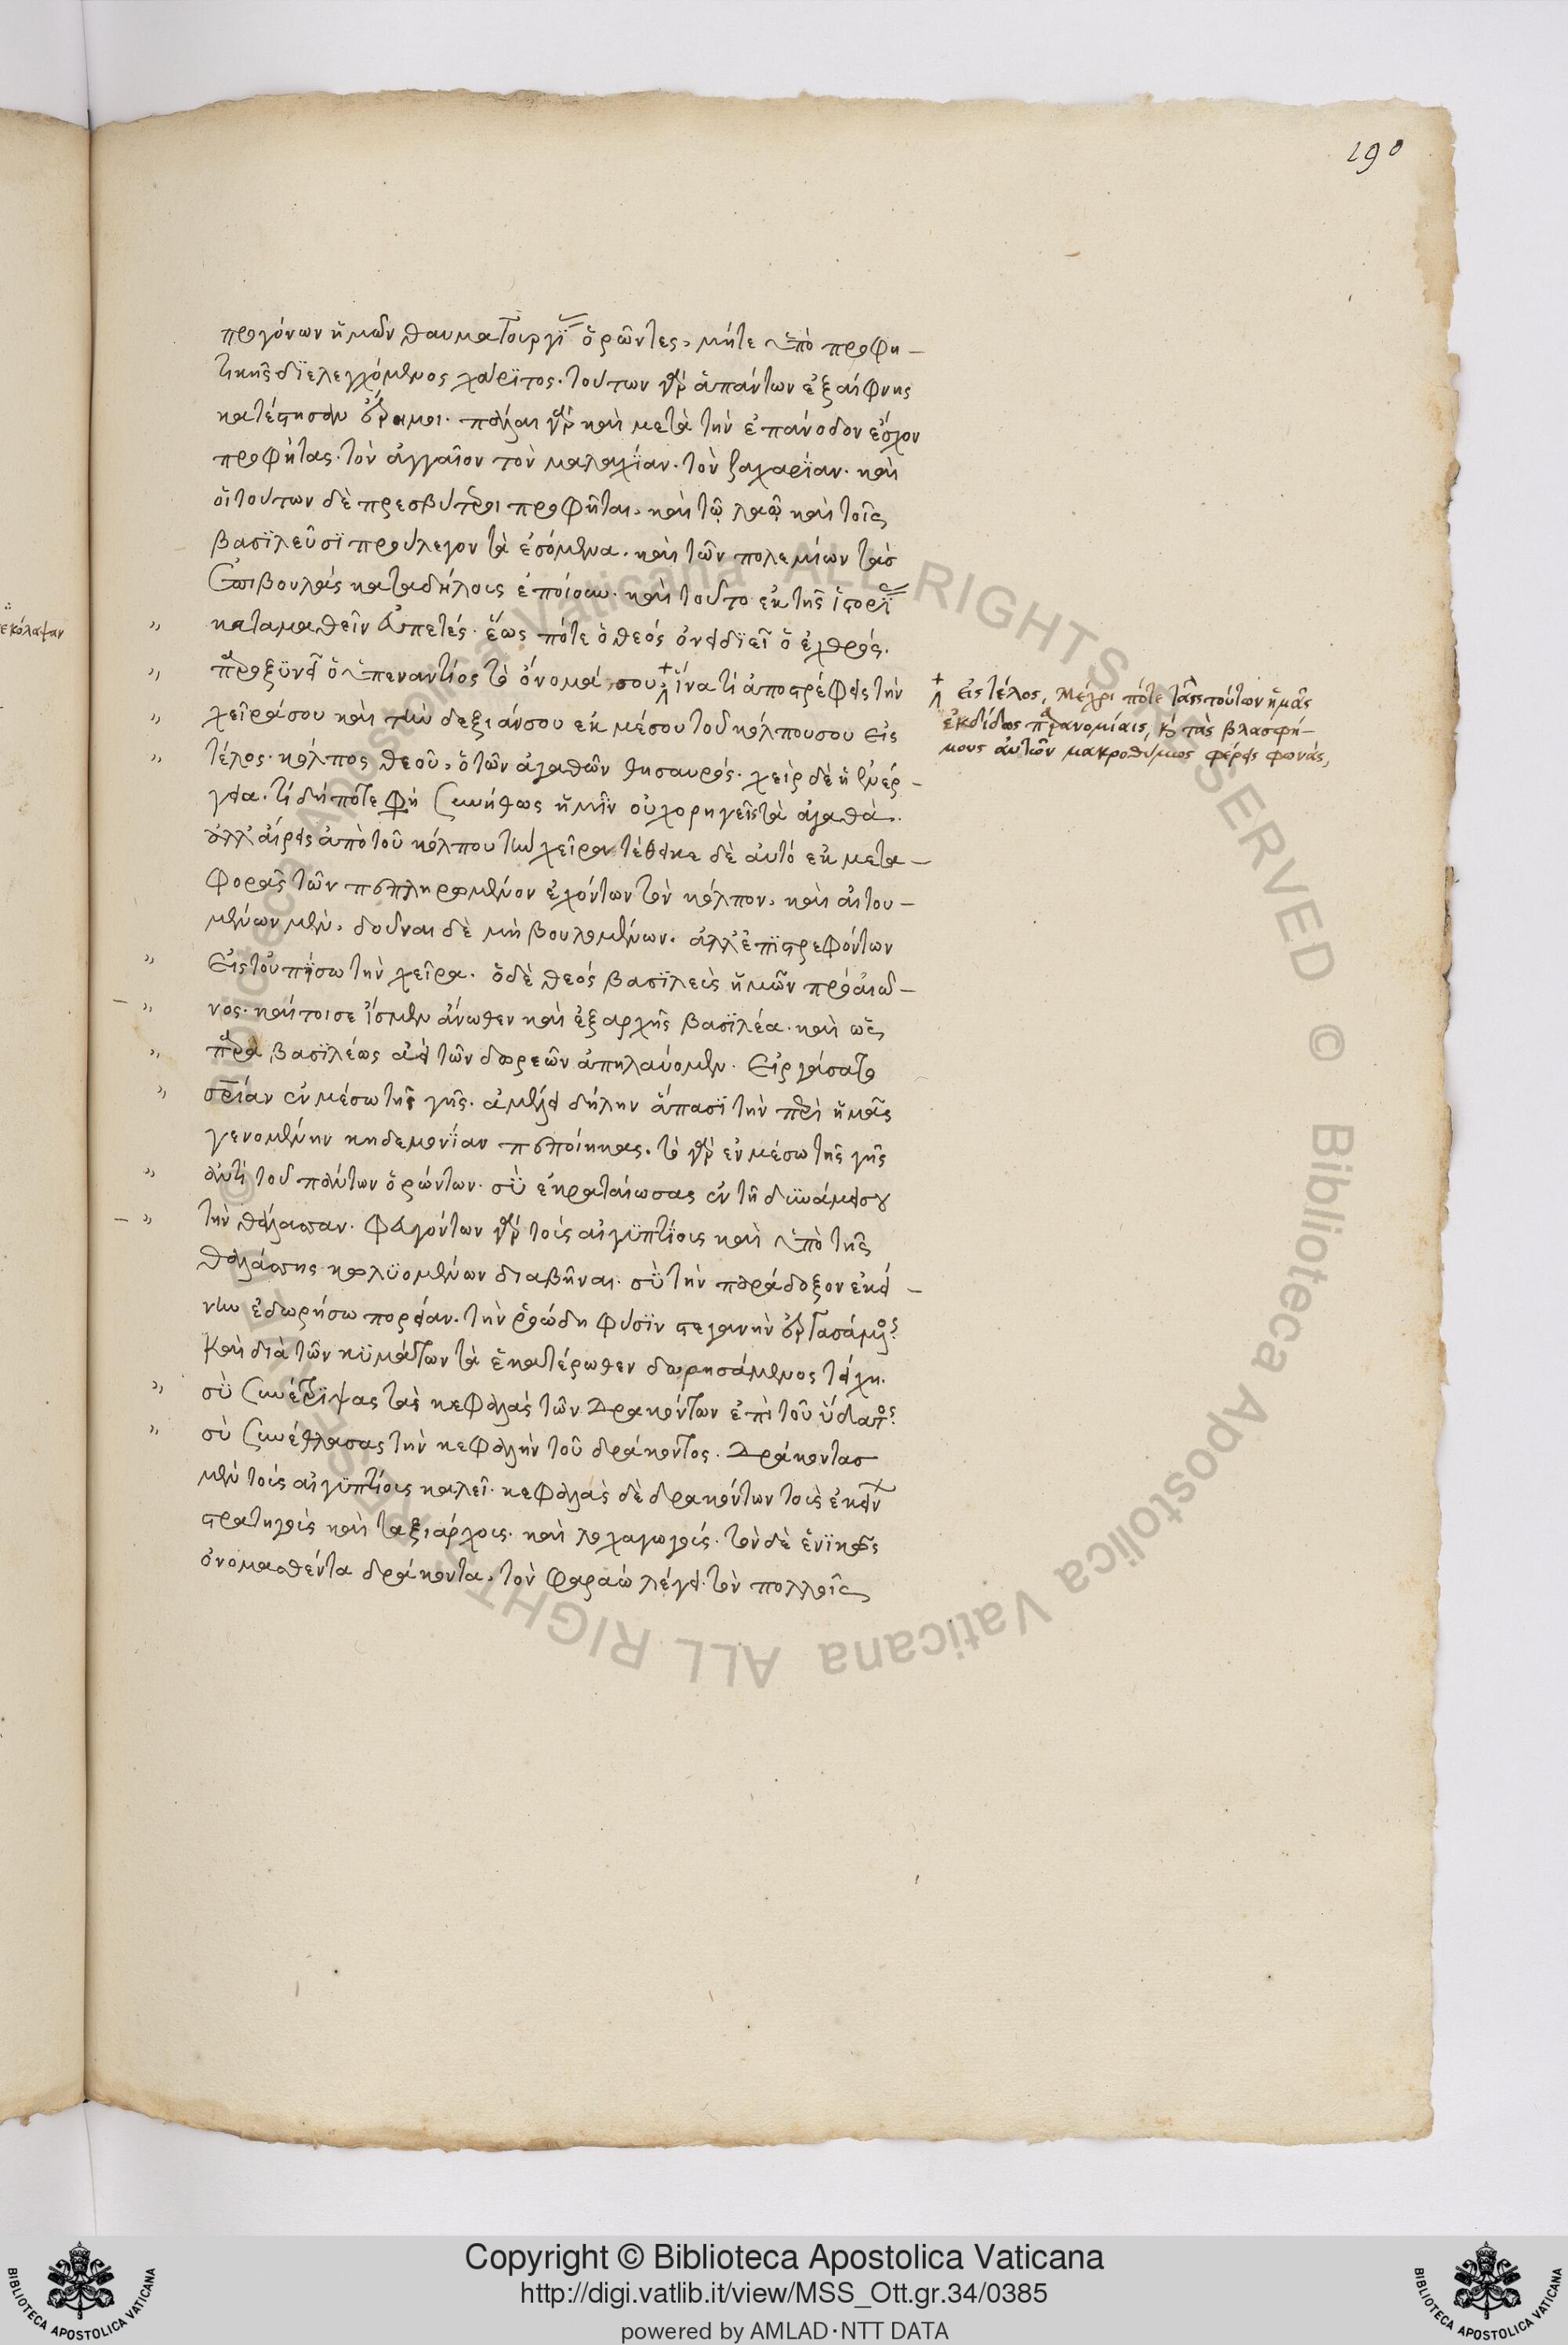 190
προγόνων ἡμῶν θαυματουργίας ὁρῶντες, μήτε ὑπὸ προφη-
τικῆς διελεγχόμενος χάριτος. τούτων γὰρ ἁπάντων ἐξαίφνης
κατέστησαν ἔρημοι. πάλαι γὰρ καὶ μετὰ τὴν ἐπάνοδον ἔσχον
προφήτας. τὸν ἀγγαῖον τὸν μαλαχίαν. τὸν ζαχαρίαν. καὶ
οἱ τούτων δὲ πρεσβύτεροι προφῆται, καὶ τῷ λαῷ καὶ τοῖς
βασιλεῦσι προύλεγον τὰ ἐσόμενα. καὶ τῶν πολεμίων τὰς
ἐπιβουλὰς καταδήλους ἐποίουν. καὶ τοῦτο ἐκ τῆς ἱστορίας
καταμαθεῖν εὐπετές. ἕως πότε ὁ θεός ὀνειδιεῖ ὁ ἐχθρός.
παροξυνεῖ ὁ ὑπεναντίος τὸ ὄνομά σου ἵνα τί ἀποστρέφεις τὴν
χεῖρά σου καὶ τὴν δεξιάν σου ἐκ μέσου τοῦ κόλπου σου εἰς
τέλος. κόλπος θεοῦ, ὁ τῶν ἀγαθῶν θησαυρός. χεὶρ δὲ ἡ ἐνέρ-
γεια. τί δήποτε φησὶ συνήθως ἡμῖν οὐ χορηγεῖς τὰ ἀγαθά.
ἀλλ' αἴρεις ἀπὸ τοῦ κόλπου τὴν χεῖρα τέθεικε δὲ αὐτό ἐκ μετα-
φορᾶς τῶν πεπληρωμένον ἐχόντων τὸν κόλπον, καὶ αἰτου-
μένων μὲν, δοῦναι δὲ μὴ βουλομένων. ἀλλ' ἐπιστρεφόντων
εἰς τοὐπίσω τὴν χεῖρα. ὁ δὲ θεός βασιλεὺς ἡμῶν πρὸ αἰῶ-
νος. καίτοι σε ἴσμεν ἄνωθεν καὶ ἐξ ἀρχῆς βασιλέα. καὶ ὡς
παρὰ βασιλέως ἀεὶ τῶν δωρεῶν ἀπηλαύομεν. εἰργάσατο
σωτηρίαν ἐν μέσω τῆς γῆς. ἀμέλει δήλην ἅπασι τὴν περὶ ἡμᾶς
γενομένην κηδεμονίαν πεποίηκας. τὸ γὰρ ἐν μέσω τῆς γῆς
ἀντὶ τοῦ πάντων ὁρώντων. σὺ ἐκραταίωσας ἐν τῆ δυνάμει σου
τὴν θάλασσαν. φευγόντων γὰρ τοὺς αἰγυπτίους καὶ ὑπὸ τῆς
θαλάσσης κωλυομένων διαβῆναι. σὺ τὴν παράδοξον ἐκεί-
νην ἐδωρήσω πορείαν. τὴν ῥοώδη φύσιν στεγανὴν ἐργασάμενος
καὶ διὰ τῶν κυμάτων τὰ ἑκατέρωθεν δωρησάμενος τείχη.
σὺ συνέτριψας τὰς κεφαλὰς τῶν δρακόντων ἐπὶ τοῦ ὕδατος
σὺ συνέθλασας τὴν κεφαλὴν τοῦ δράκοντος. Δράκοντας
μὲν τοὺς αἰγυπτίους καλεῖ. κεφαλὰς δὲ δρακόντων τοὺς ἐκείνων
στρατηγοὺς καὶ ταξιάρχους. καὶ λοχαγωγούς. τὸν δὲ ἑνικῶς
ὀνομασθέντα δράκοντα, τὸν φαραὼ λέγει. τὸν πολλοῖς
εἰς τέλος, μέχρι πότε ταῖς τούτων ἡμᾶς
ἐκδίδως παρανομίαις, καὶ τὰς βλασφή-
μους αὐτῶν μακροθύμως φέρεις φωνάς,
ἐκόλαψαν
Copyright © Biblioteca Apostolica Vaticana
http://digi.vatlib.it/view/MSS_Ott.gr.34/0385
powered by AMLAD·NTT DATA